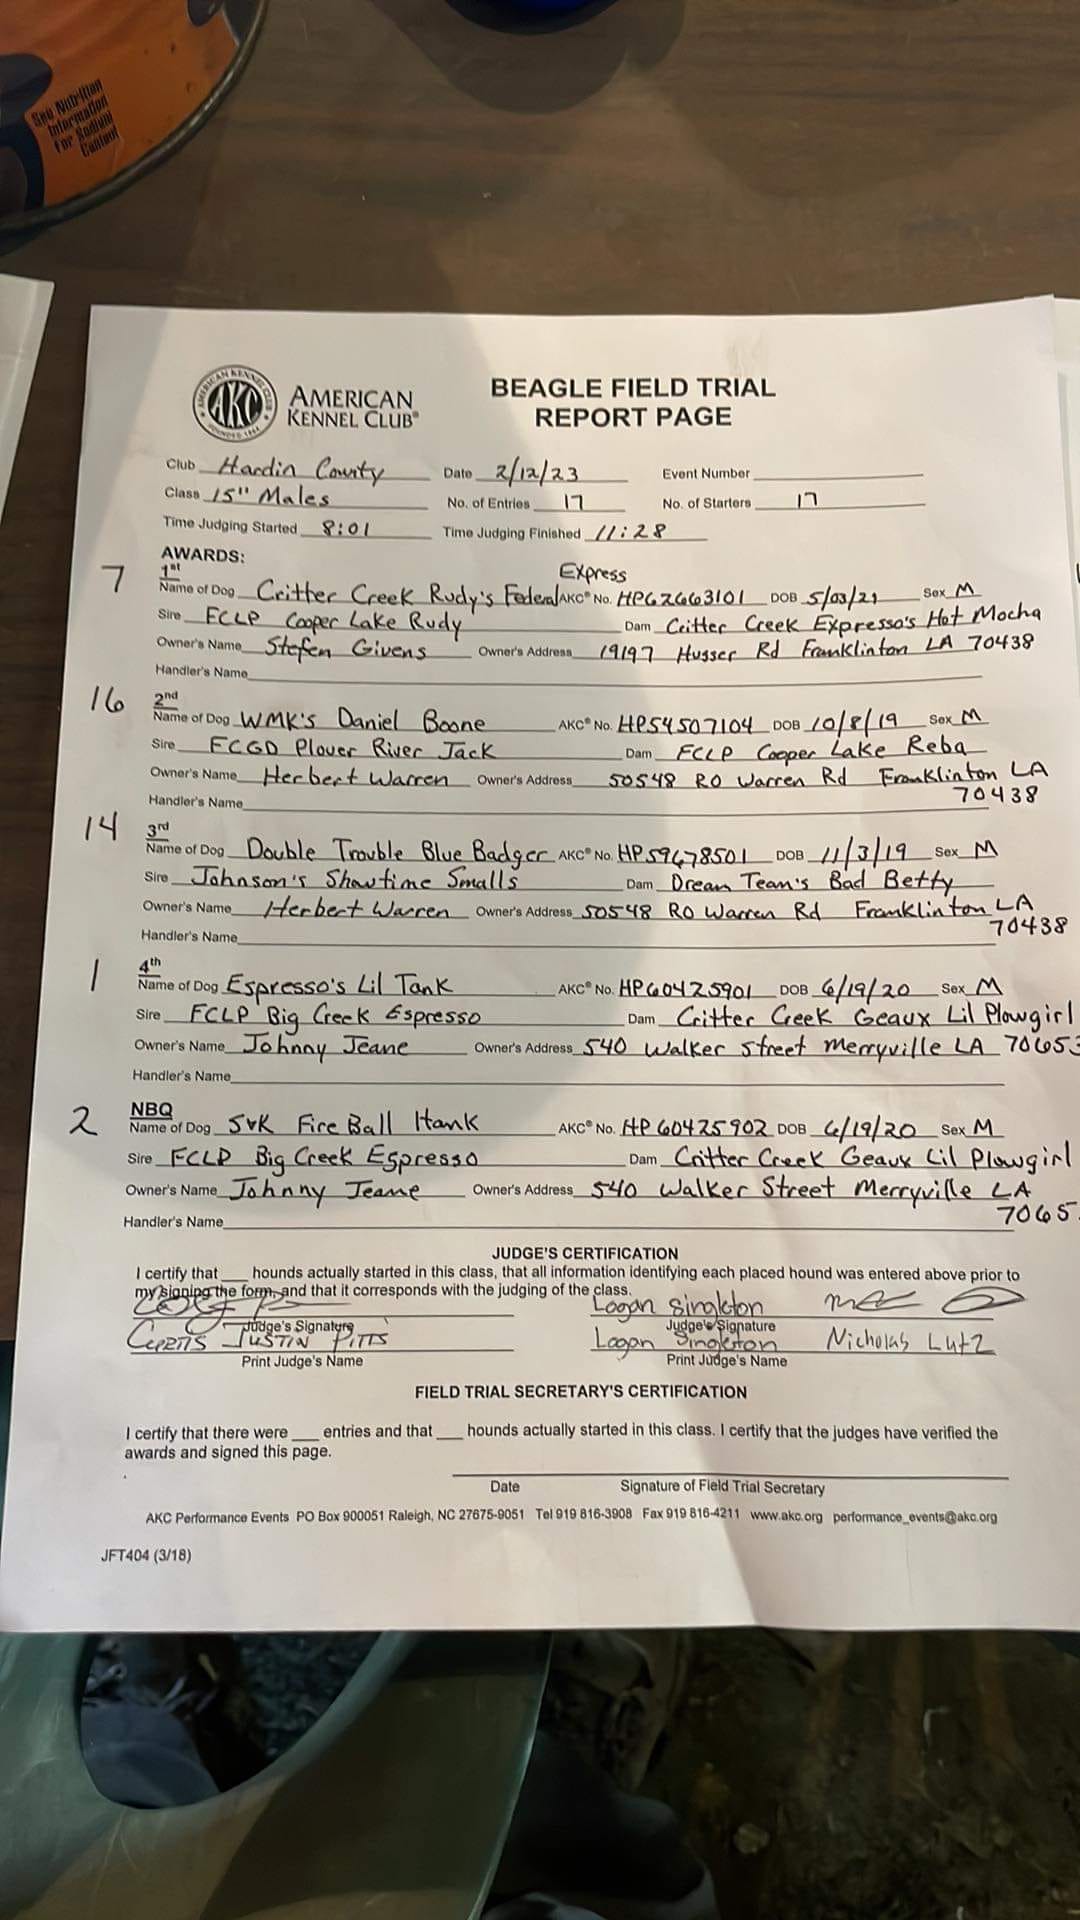 See Nutrition
Information
for Sodium
Content
AMERICAN KENNEL CLUB
AKC
FOUNDED 1884
AMERICAN
KENNEL CLUB®
BEAGLE FIELD TRIAL
REPORT PAGE
Club Hardin County Date 2/12/23 Event Number
Class 15" Males No. of Entries 17 No. of Starters 17
Time Judging Started 8:01 Time Judging Finished 11:28
AWARDS:
7 1st
Express
Name of Dog Critter Creek Rudy's Federal AKC® No. HP62663101 DOB 5/03/21 Sex M
Sire FCLP Cooper Lake Rudy Dam Critter Creek Expresso's Hot Mocha
Owner's Name Stefen Givens Owner's Address 19197 Husser Rd Franklinton LA 70438
Handler's Name
16 2nd
Name of Dog WMK's Daniel Boone AKC® No. HP54507104 DOB 10/8/19 Sex M
Sire FCGD Plover River Jack Dam FCLP Cooper Lake Reba
Owner's Name Herbert Warren Owner's Address 50548 RO Warren Rd Franklinton LA
70438
Handler's Name
14 3rd
Name of Dog Double Trouble Blue Badger AKC® No. HP59678501 DOB 11/3/19 Sex M
Sire Johnson's Showtime Smalls Dam Dream Team's Bad Betty
Owner's Name Herbert Warren Owner's Address 50548 RO Warren Rd Franklinton LA
70438
Handler's Name
1 4th
Name of Dog Espresso's Lil Tank AKC® No. HP60425901 DOB 6/19/20 Sex M
Sire FCLP Big Creek Espresso Dam Critter Creek Geaux Lil Plowgirl
Owner's Name Johnny Jeane Owner's Address 540 Walker Street Merryville LA 70653
Handler's Name
2 NBQ
Name of Dog SVK Fire Ball Hank AKC® No. HP60425902 DOB 6/19/20 Sex M
Sire FCLP Big Creek Espresso Dam Critter Creek Geaux Lil Plowgirl
Owner's Name Johnny Jeane Owner's Address 540 Walker Street Merryville LA
7065
Handler's Name
JUDGE'S CERTIFICATION
I certify that ___ hounds actually started in this class, that all information identifying each placed hound was entered above prior to
my signing the form, and that it corresponds with the judging of the class.
Logan Singleton
Judge's Signature Judge's Signature
Curtis Justin Pitts Logan Singleton Nicholas Lutz
Print Judge's Name Print Judge's Name
FIELD TRIAL SECRETARY'S CERTIFICATION
I certify that there were ___ entries and that ___ hounds actually started in this class. I certify that the judges have verified the
awards and signed this page.
Date Signature of Field Trial Secretary
AKC Performance Events PO Box 900051 Raleigh, NC 27675-9051 Tel 919 816-3908 Fax 919 816-4211 www.akc.org performance_events@akc.org
JFT404 (3/18)